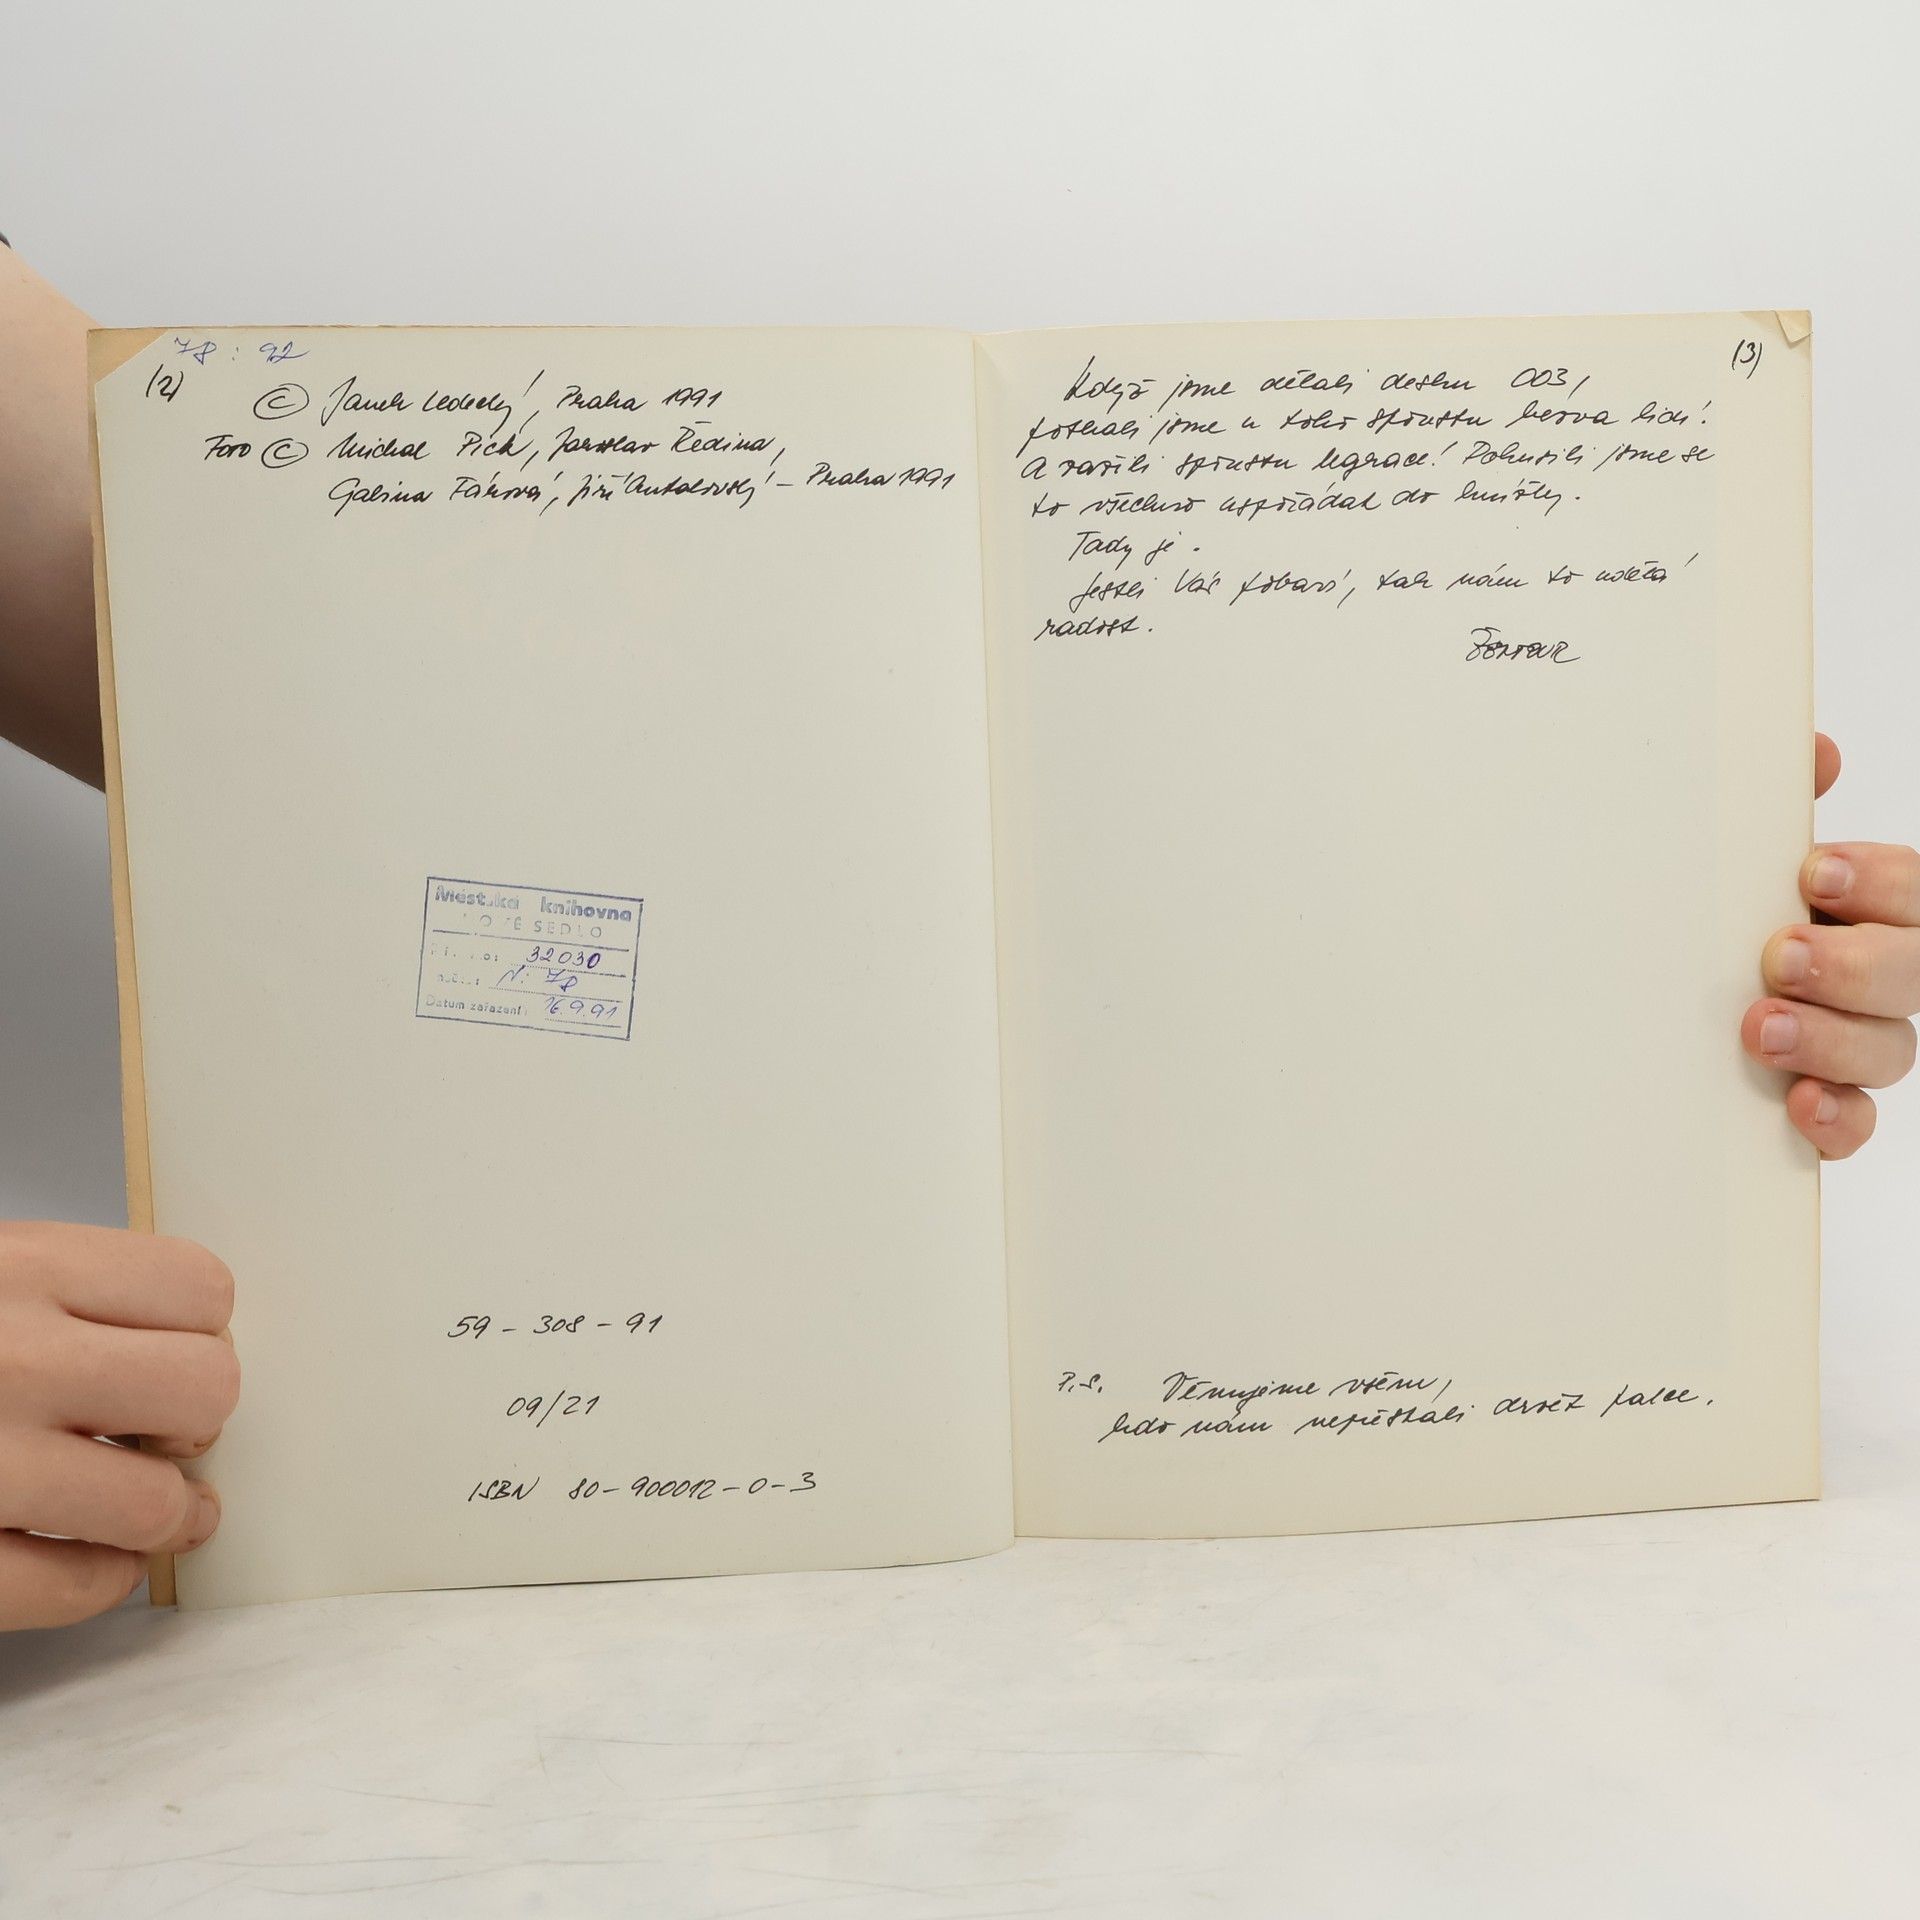 78 : 92
(2)
© Janek Ledecký, Praha 1991
Foto © Michal Pick, Jaroslav Ředina,
Galina Fárová, Jiří Antalovský – Praha 1991
Městská knihovna
NOVÉ SEDLO
32030
N: 78
Datum zařazení: 16.9.91
59 – 308 – 91
09/21
ISBN 80 – 900012 – 0 – 3
(3)
Když jsme dělali desku 003,
potkali jsme u toho spoustu bezva lidí!
A zažili spoustu legrace! Pokusili jsme se
to všechno uspořádat do knížky.
Tady je.
Jestli Vás pobaví, tak nám to udělá
radost.
Žentour
P.S. Věnujeme všem,
kdo nám nepřestali držet palce.